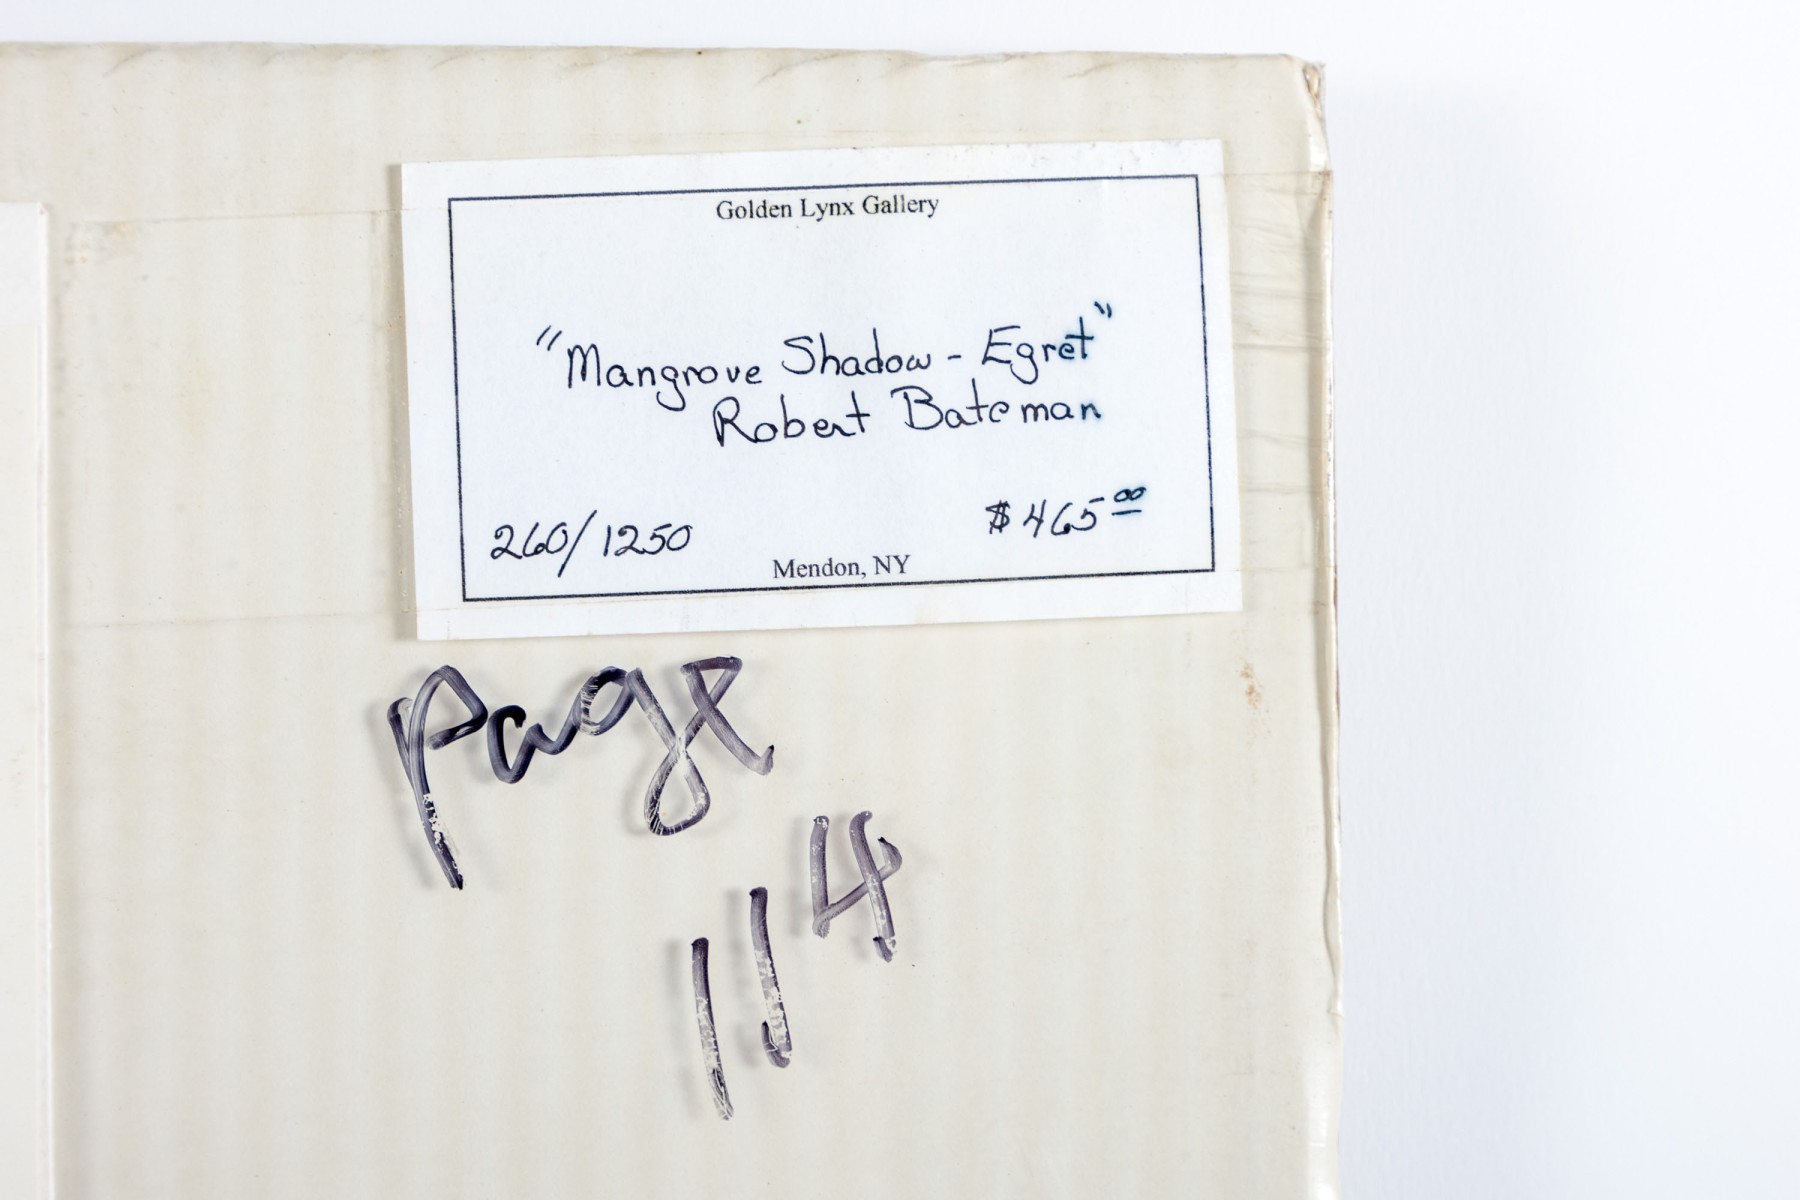 Golden Lynx Gallery
"Mangrove Shadow - Egret"
Robert Bateman
260/1250 $465.00
Mendon, NY
page
114